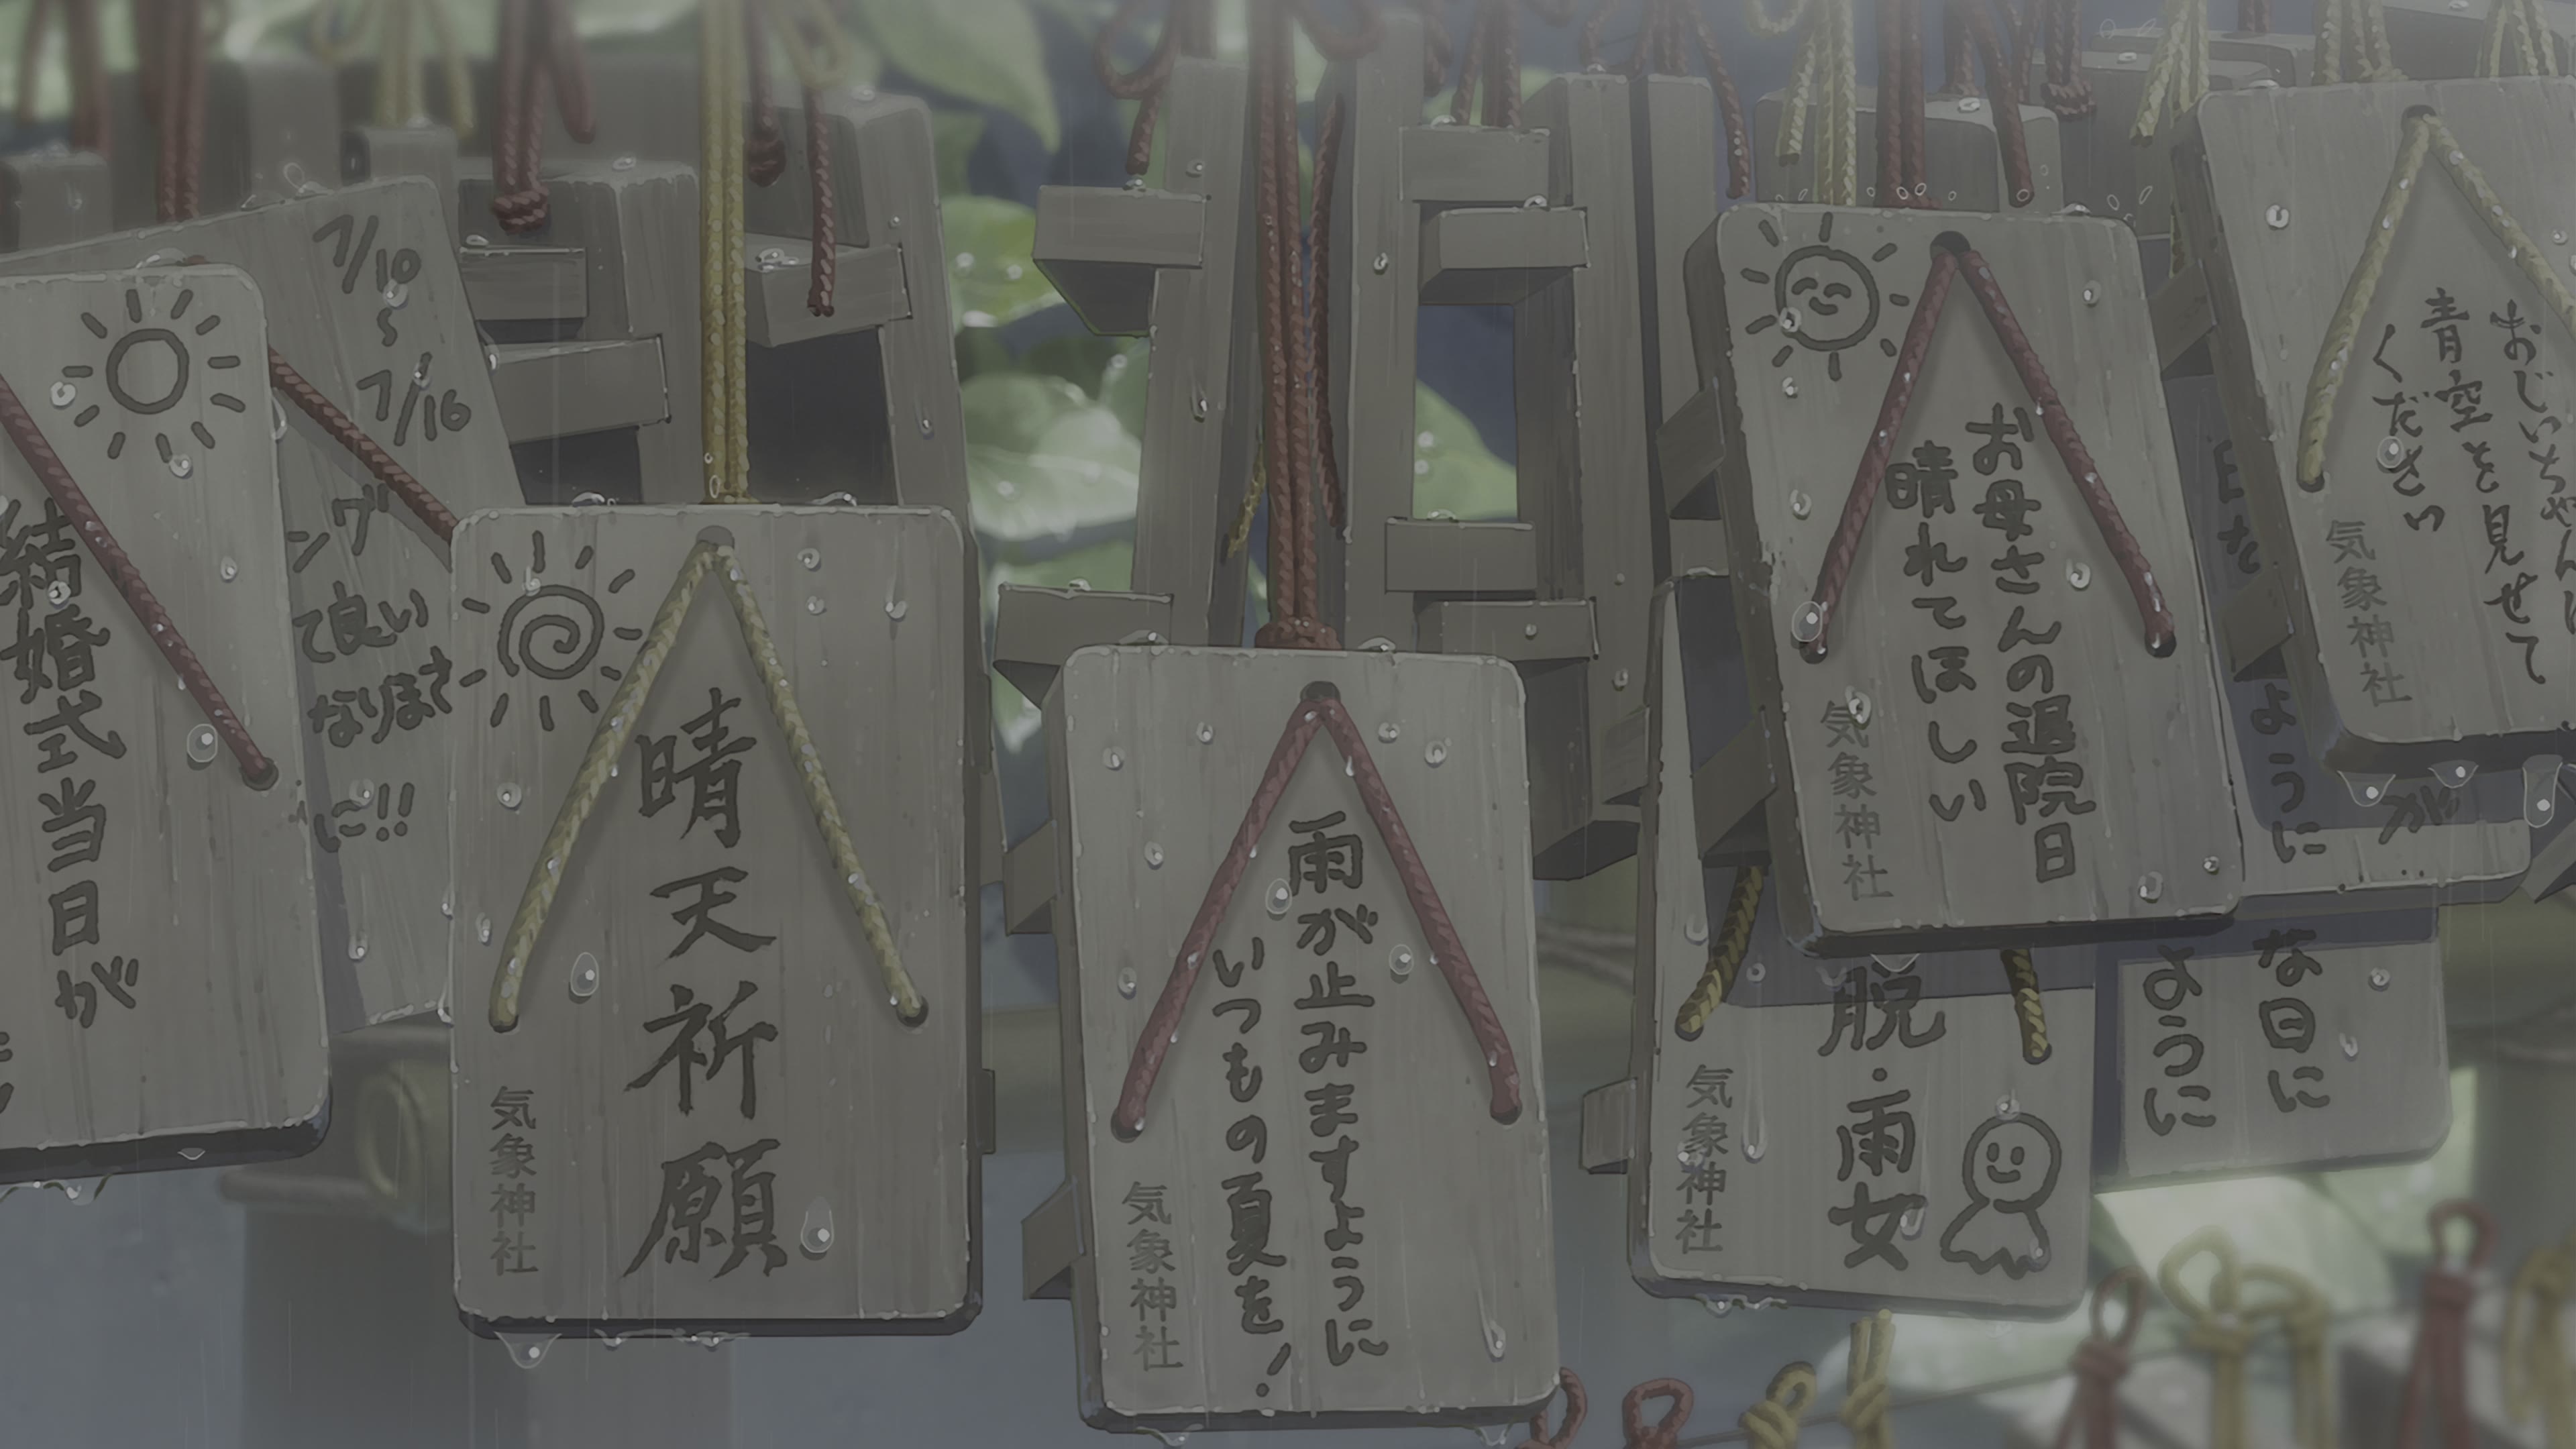 結婚式当日が
7/10
〜
7/16
ング
て良い
なりまさ
に!!
晴天祈願
気象神社
雨が止みますように
いつもの夏を!
気象神社
お母さんの退院日
晴れてほしい
気象神社
脱・雨女
気象神社
おじいちゃんに
青空を見せて
ください
気象神社
ように
が
な日に
ように